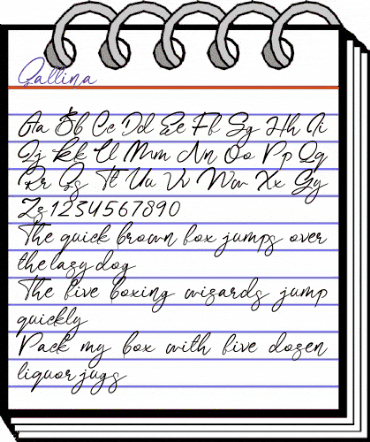 Gallina
Aa Bb Cc Dd Ee Ff Gg Hh Ii
Jj Kk Ll Mm Nn Oo Pp Qq
Rr Ss Tt Uu Vv Ww Xx Yy
Zz 1234567890
The quick brown fox jumps over
the lazy dog
The five boxing wizards jump
quickly
Pack my box with five dozen
liquor jugs